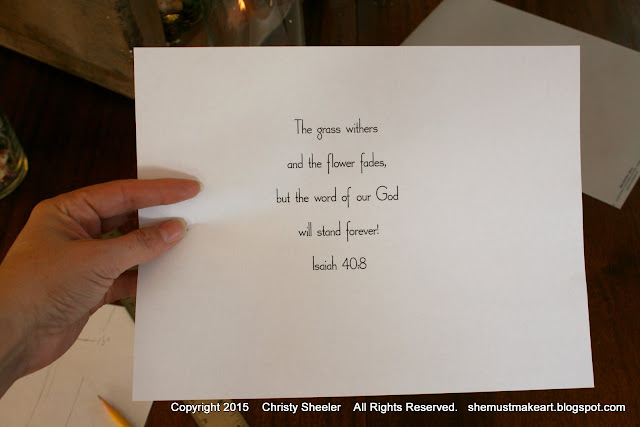 The grass withers
and the flower fades,
but the word of our God
will stand forever!
Isaiah 40:8
Copyright 2015 Christy Sheeler All Rights Reserved. shemustmakeart.blogspot.com